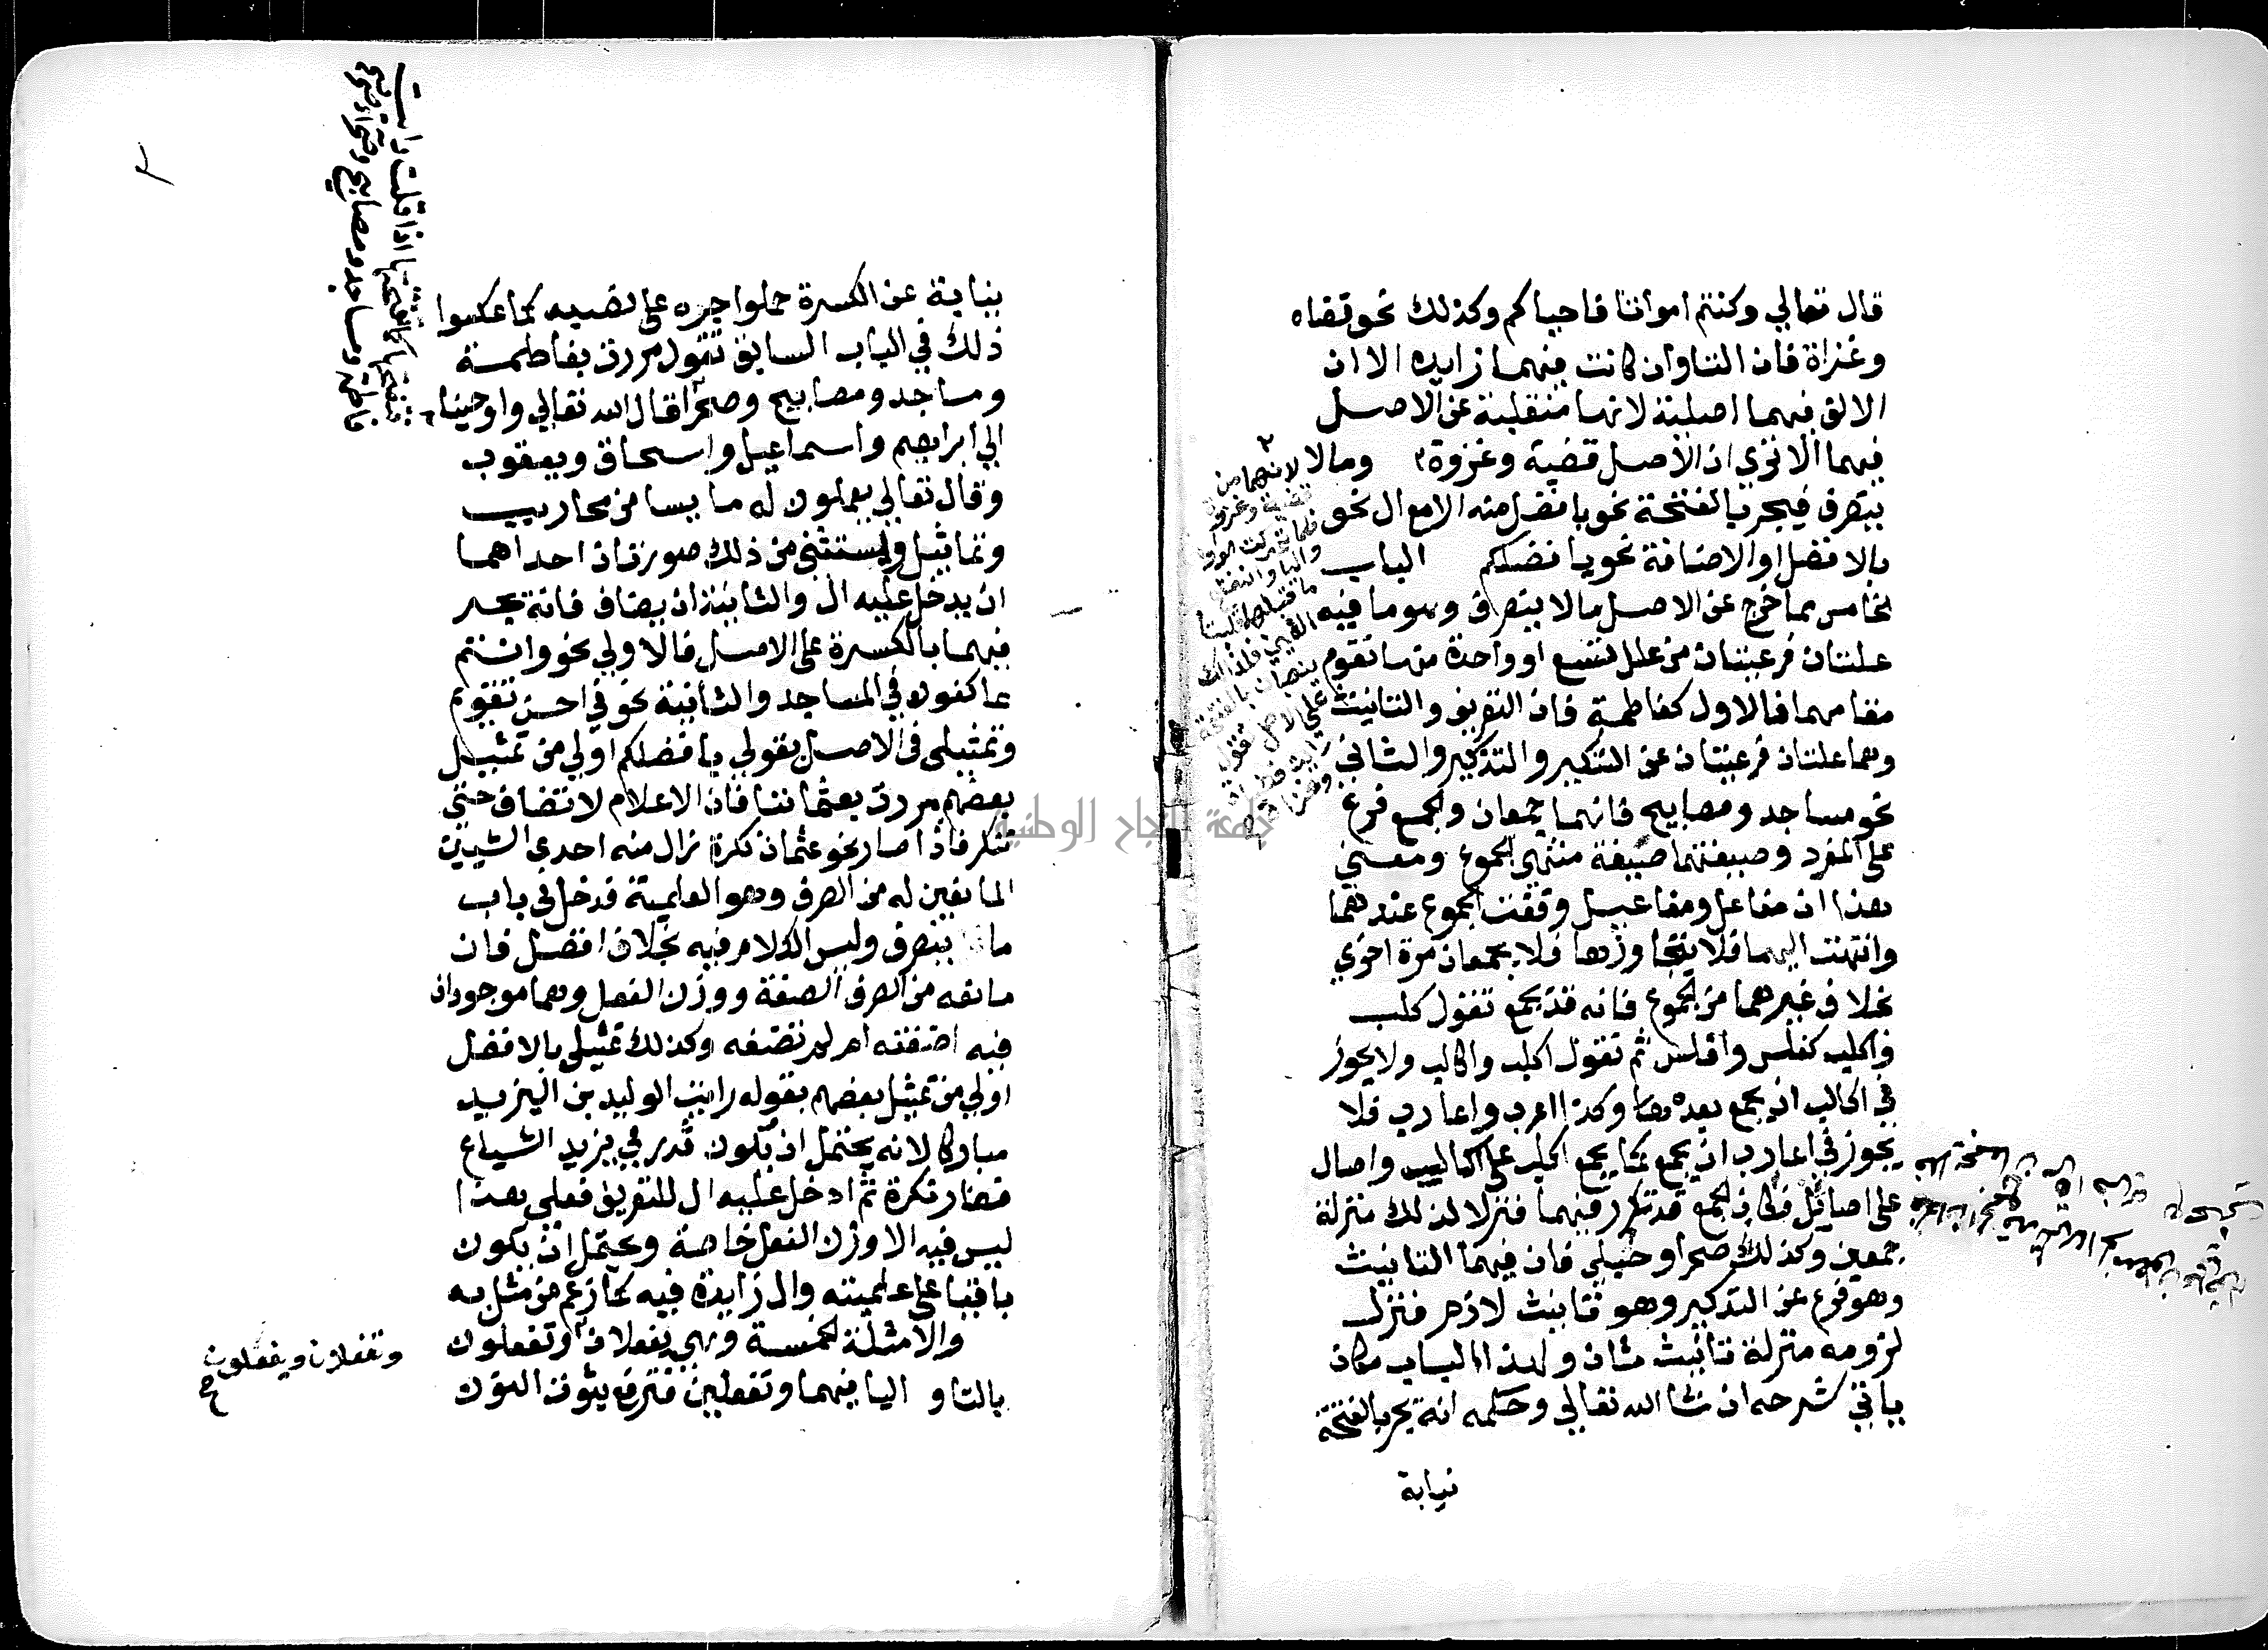 قال تعالي وكنتم امواتا فاحياكم وكذلك نحو قضاه
وغزاة فان التاوان كانت فيهما زايده الا ان
الالف فيهما اصلية لانها منقلبة عن الاصل
فيهما الا تري ان الاصل قضية وغزوة ومالا
ينصرف فيجر بالفتحة نحو بافضل منه الا مع ال نحو
بالافضل او الاضافة نحو بافضلكم الباب
الخامس مما خرج عن الاصل مالا ينصرف وهو ما فيه
علتان فرعيتان من علل تسع او واحدة منها تقوم
مقامهما فالاول كفاطمة فان التعريف والتانيث
وهما علتان فرعيتان عن التنكير والتذكير والثاني
نحو مساجد ومصابيح فانهما جمعان والجمع فرع
علي المفرد وصيغتهما صيغة منتهي الجموع ومعني
هذا ان مفاعل ومفاعيل وقفت الجموع عندهما
وانتهت اليهما فلا تتجاوزها فلا يجمعان مرة اخري
بخلاف غيرهما من الجموع فانه قد يجمع تقول كلب
واكلب كفلس وافلس ثم تقول اكلب واكالب ولا يجوز
في اكالب ان يجمع بعد وكذا اعرب واعارب فلا
يجوز في اعارب ان يجمع كما يجمع اكلب علي اكالب واصال
علي اصايل فكان الجمع قد تكرر فيهما فنزلا لذلك منزلة
جمعين وكذلك صحرا وحبلي فان فيهما التانيث
وهو فرع عن التذكير وهو تانيث لازم فنزل
لزومه منزلة تانيث ثان ولهذا الباب مكان
ياتي شرحه ان شا الله تعالي وحكمه انه يجر بالفتحة
نيابة
لانهما من
قضية وغزوة
فلما تحركت الواو
واليا وانفتح
ما قبلهما قلبتا
الفين فلذلك
ينصبان بالفتحة
علي الاصل تقول
بنيابة عن الكسرة حملوا جره علي نصبه كما عكسوا
ذلك في الباب السابق تقول مررت بفاطمة
ومساجد ومصابيح وصحرا قال الله تعالي واوحينا
الي ابراهيم واسماعيل واسحاق ويعقوب
وقال تعالي يعملون له ما يشا من محاريب
وتماثيل ويستثني من ذلك صورتان احداهما
ان يدخل عليه ال والثانية ان يضاف فانه يجر
فيهما بالكسرة علي الاصل فالاولي نحو وانتم
عاكفون في المساجد والثانية نحو في احسن تقويم
وتمثيلي في الاصل بقولي بافضلكم اولي من تمثيل
بعضهم مررت بعثماننا فان الاعلام لا تضاف حتي
تنكر فاذا صار نحو عثمان نكرة زال منه احدي الشيئين
المانعين له من الصرف وهو العلمية فدخل في باب
ما ينصرف وليس الكلام فيه بخلاف افضل فان
مانعه من الصرف الصفة ووزن الفعل وهما موجودان
فيه اضفته ام لم تضفه وكذلك تمثيلي بالافضل
اولي من تمثيل بعضهم بقوله رايت الوليد بن اليزيد
مباركا لانه يحتمل ان يكون قدر في يزيد الشياع
فصار نكرة ثم ادخل عليه ال للتعريف فعلي هذا
ليس فيه الا وزن الفعل خاصة ويحتمل ان يكون
باقيا علي علميته وال زايدة فيه كما زعم من مثل به
والامثلة الخمسة وهي يفعلان وتفعلون
بالتا واليا فيهما وتفعلين فترفع بثبوت النون
وتفعلان ويفعلون
فتنصبها بالفتحة اذا قلت رايت
فاطمة ومساجد ومصابيح وصحراء
جامعة النجاح الوطنية